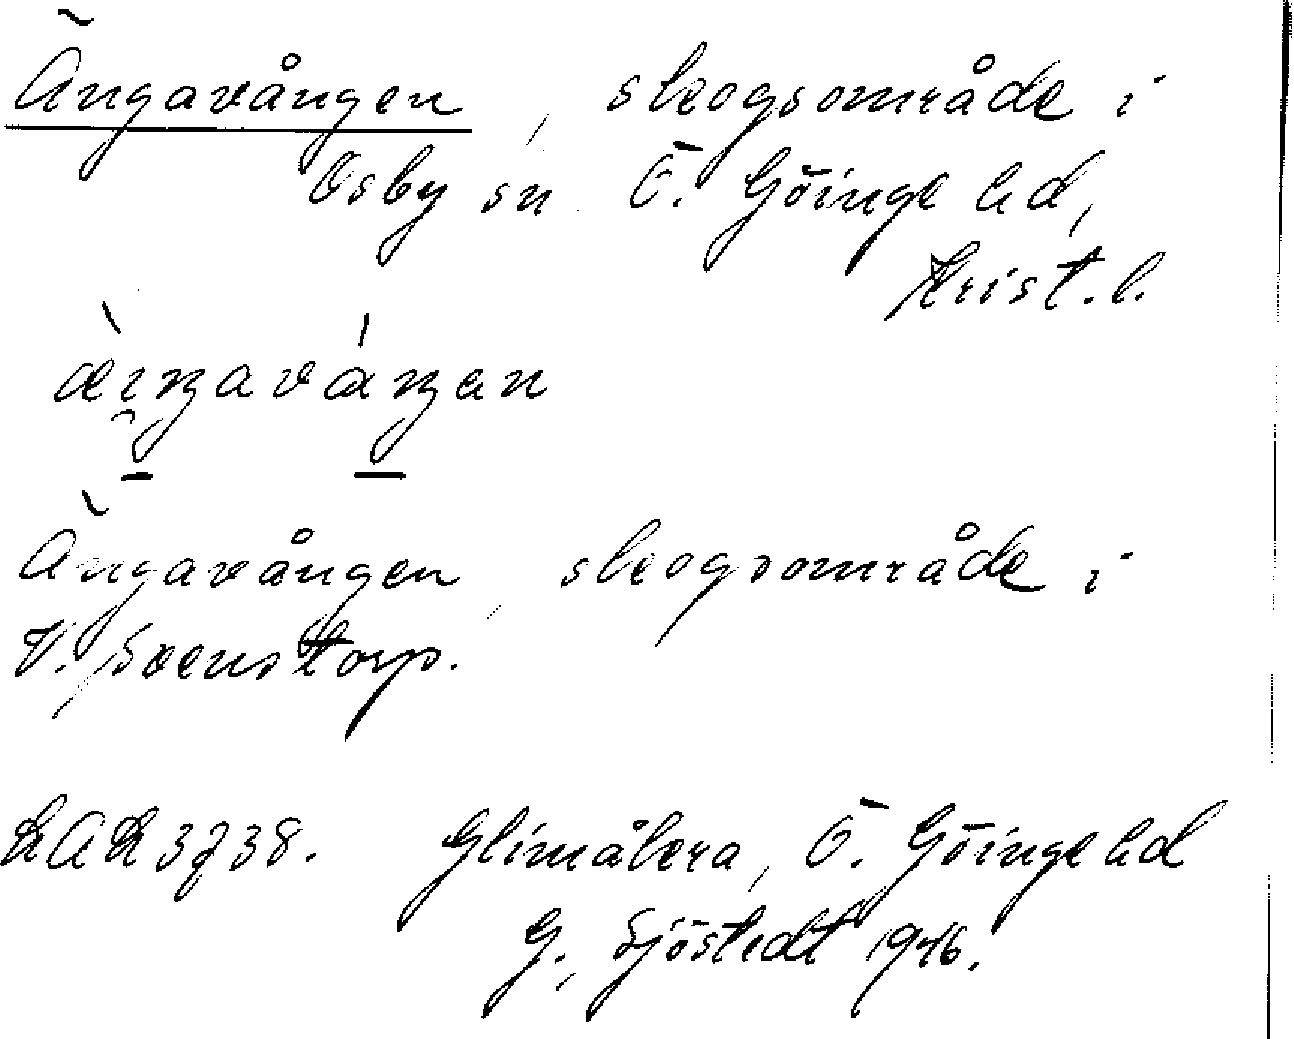 Ängavången, skogsområde i
Osby sn. Ö. Göinge hd,
Krist. l.
Ängavången, skogsområde i
V. Svenstorp.
LAL 3738. Glimåkra, Ö. Göinge hd
G. Sjöstedt 1946.